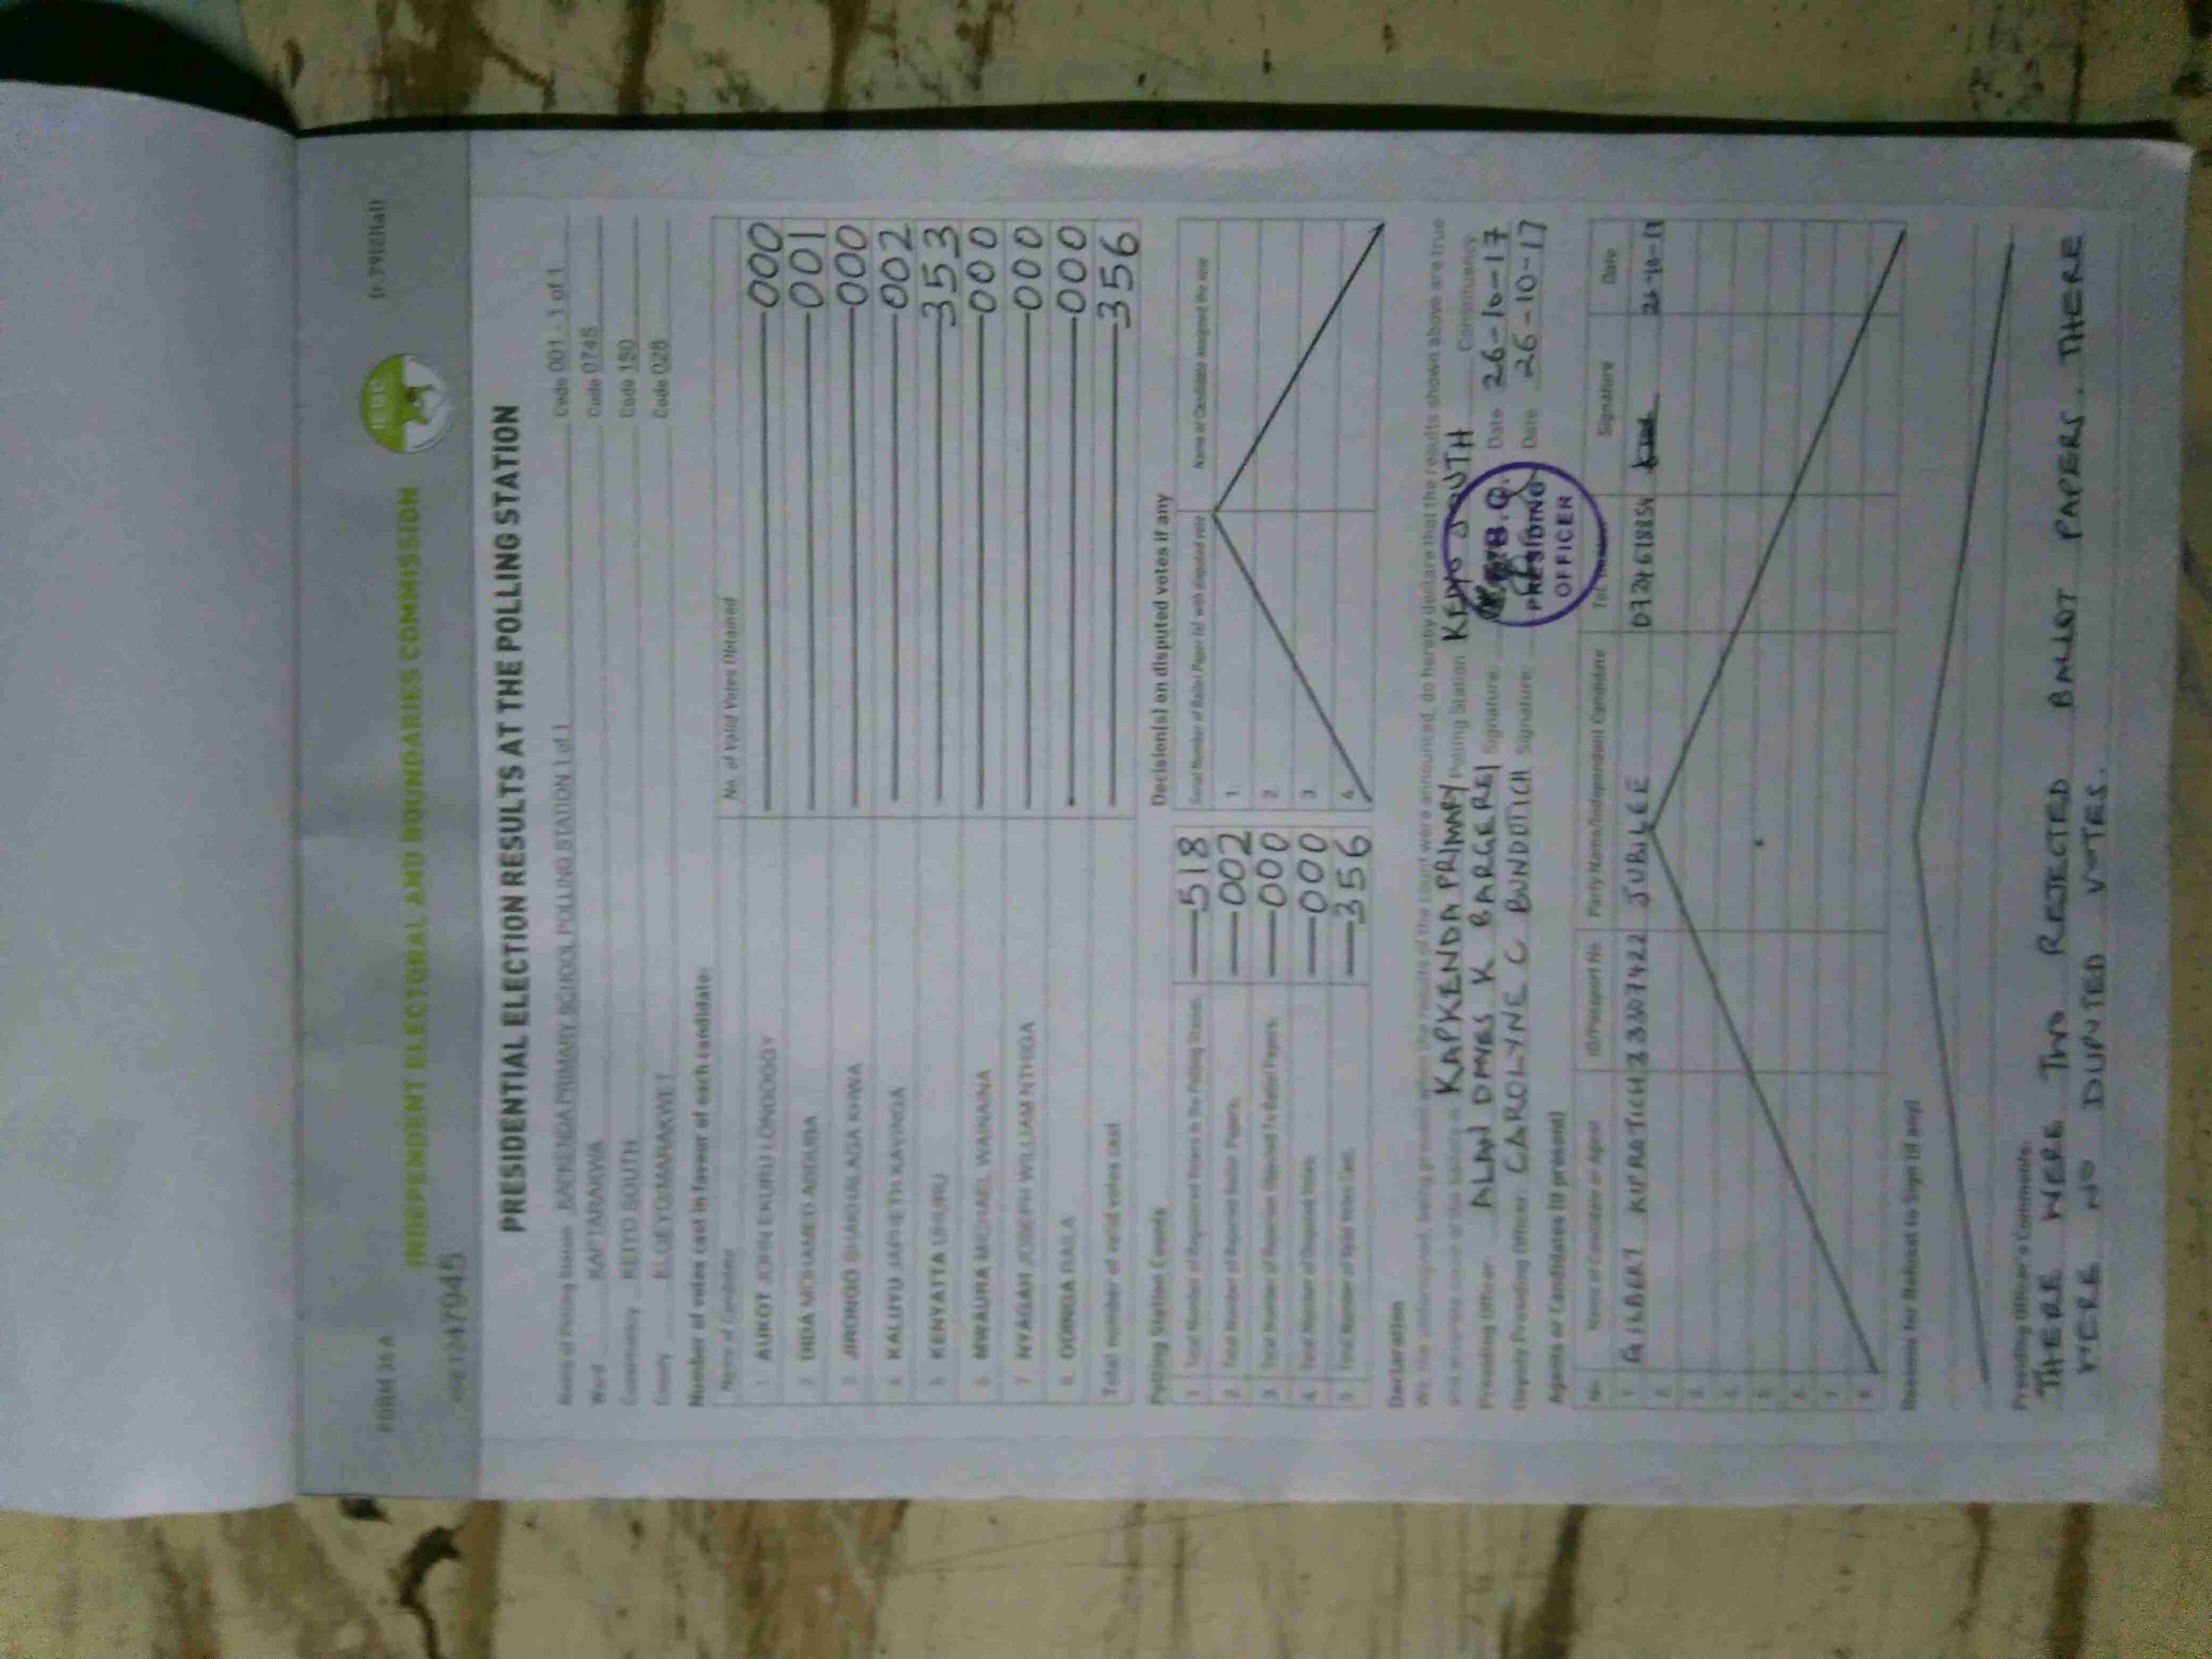 FORM 34 A
(r.79(2)(a))
INDEPENDENT ELECTORAL AND BOUNDARIES COMMISSION
IEBC
PRESIDENTIAL ELECTION RESULTS AT THE POLLING STATION
Name of Polling Station KAPKENDA PRIMARY SCHOOL POLLING STATION 1 of 1 Code 001 - 1 of 1
Ward KAPTARAKWA Code 0745
Constituency KEIYO SOUTH Code 150
County ELGEYO/MARAKWET Code 028
Number of votes cast in favour of each candidate:
Name of Candidate No. of Valid Votes Obtained
1 AUKOT JOHN EKURU LONGOGGY 000
2 DIDA MOHAMED ABDUBA 001
3 JIRONGO SHAKHALAGA KHWA 000
4 KALUYU JAPHETH KAVINGA 002
5 KENYATTA UHURU 353
6 MWAURA MICHAEL WAINAINA 000
7 NYAGAH JOSEPH WILLIAM NTHIGA 000
8 ODINGA RAILA 000
Total number of valid votes cast 356
Polling Station Counts
1 Total Number of Registered Voters in the Polling Station 518
2 Total Number of Rejected Ballot Papers 002
3 Total Number of Rejection Objected To Ballot Papers 000
4 Total Number of Disputed Votes 000
5 Total Number of Valid Votes Cast 356
Decision(s) on disputed votes if any
Serial Number of Ballot Paper (s) with disputed vote Name of Candidate assigned the vote
1.
2.
3.
4.
Declaration
We, the undersigned, being present when the results of the count were announced, do hereby declare that the results shown above are true
and accurate count of the ballots in KAPKENDA PRIMARY Polling Station KEIYO SOUTH Constituency
Presiding Officer: Signature: Date 26-10-17
Deputy Presiding Officer: CAROLYNE C BUNDOTICH Signature: Date 26-10-17
PRESIDING
OFFICER
Agents or Candidates (if present)
No. Name of Candidate or Agent ID/Passport No. Party Name/Independent Candidate Signature Date
1. GILBERT KIPROTICH 23307422 JUBILEE 26-10-17
2.
3.
4.
5.
6.
7.
8.
Reasons for Refusal to Sign (if any)
Presiding Officer's Comments:
THERE WERE TWO REJECTED BALLOT PAPERS. THERE
WERE NO DISPUTED VOTES.